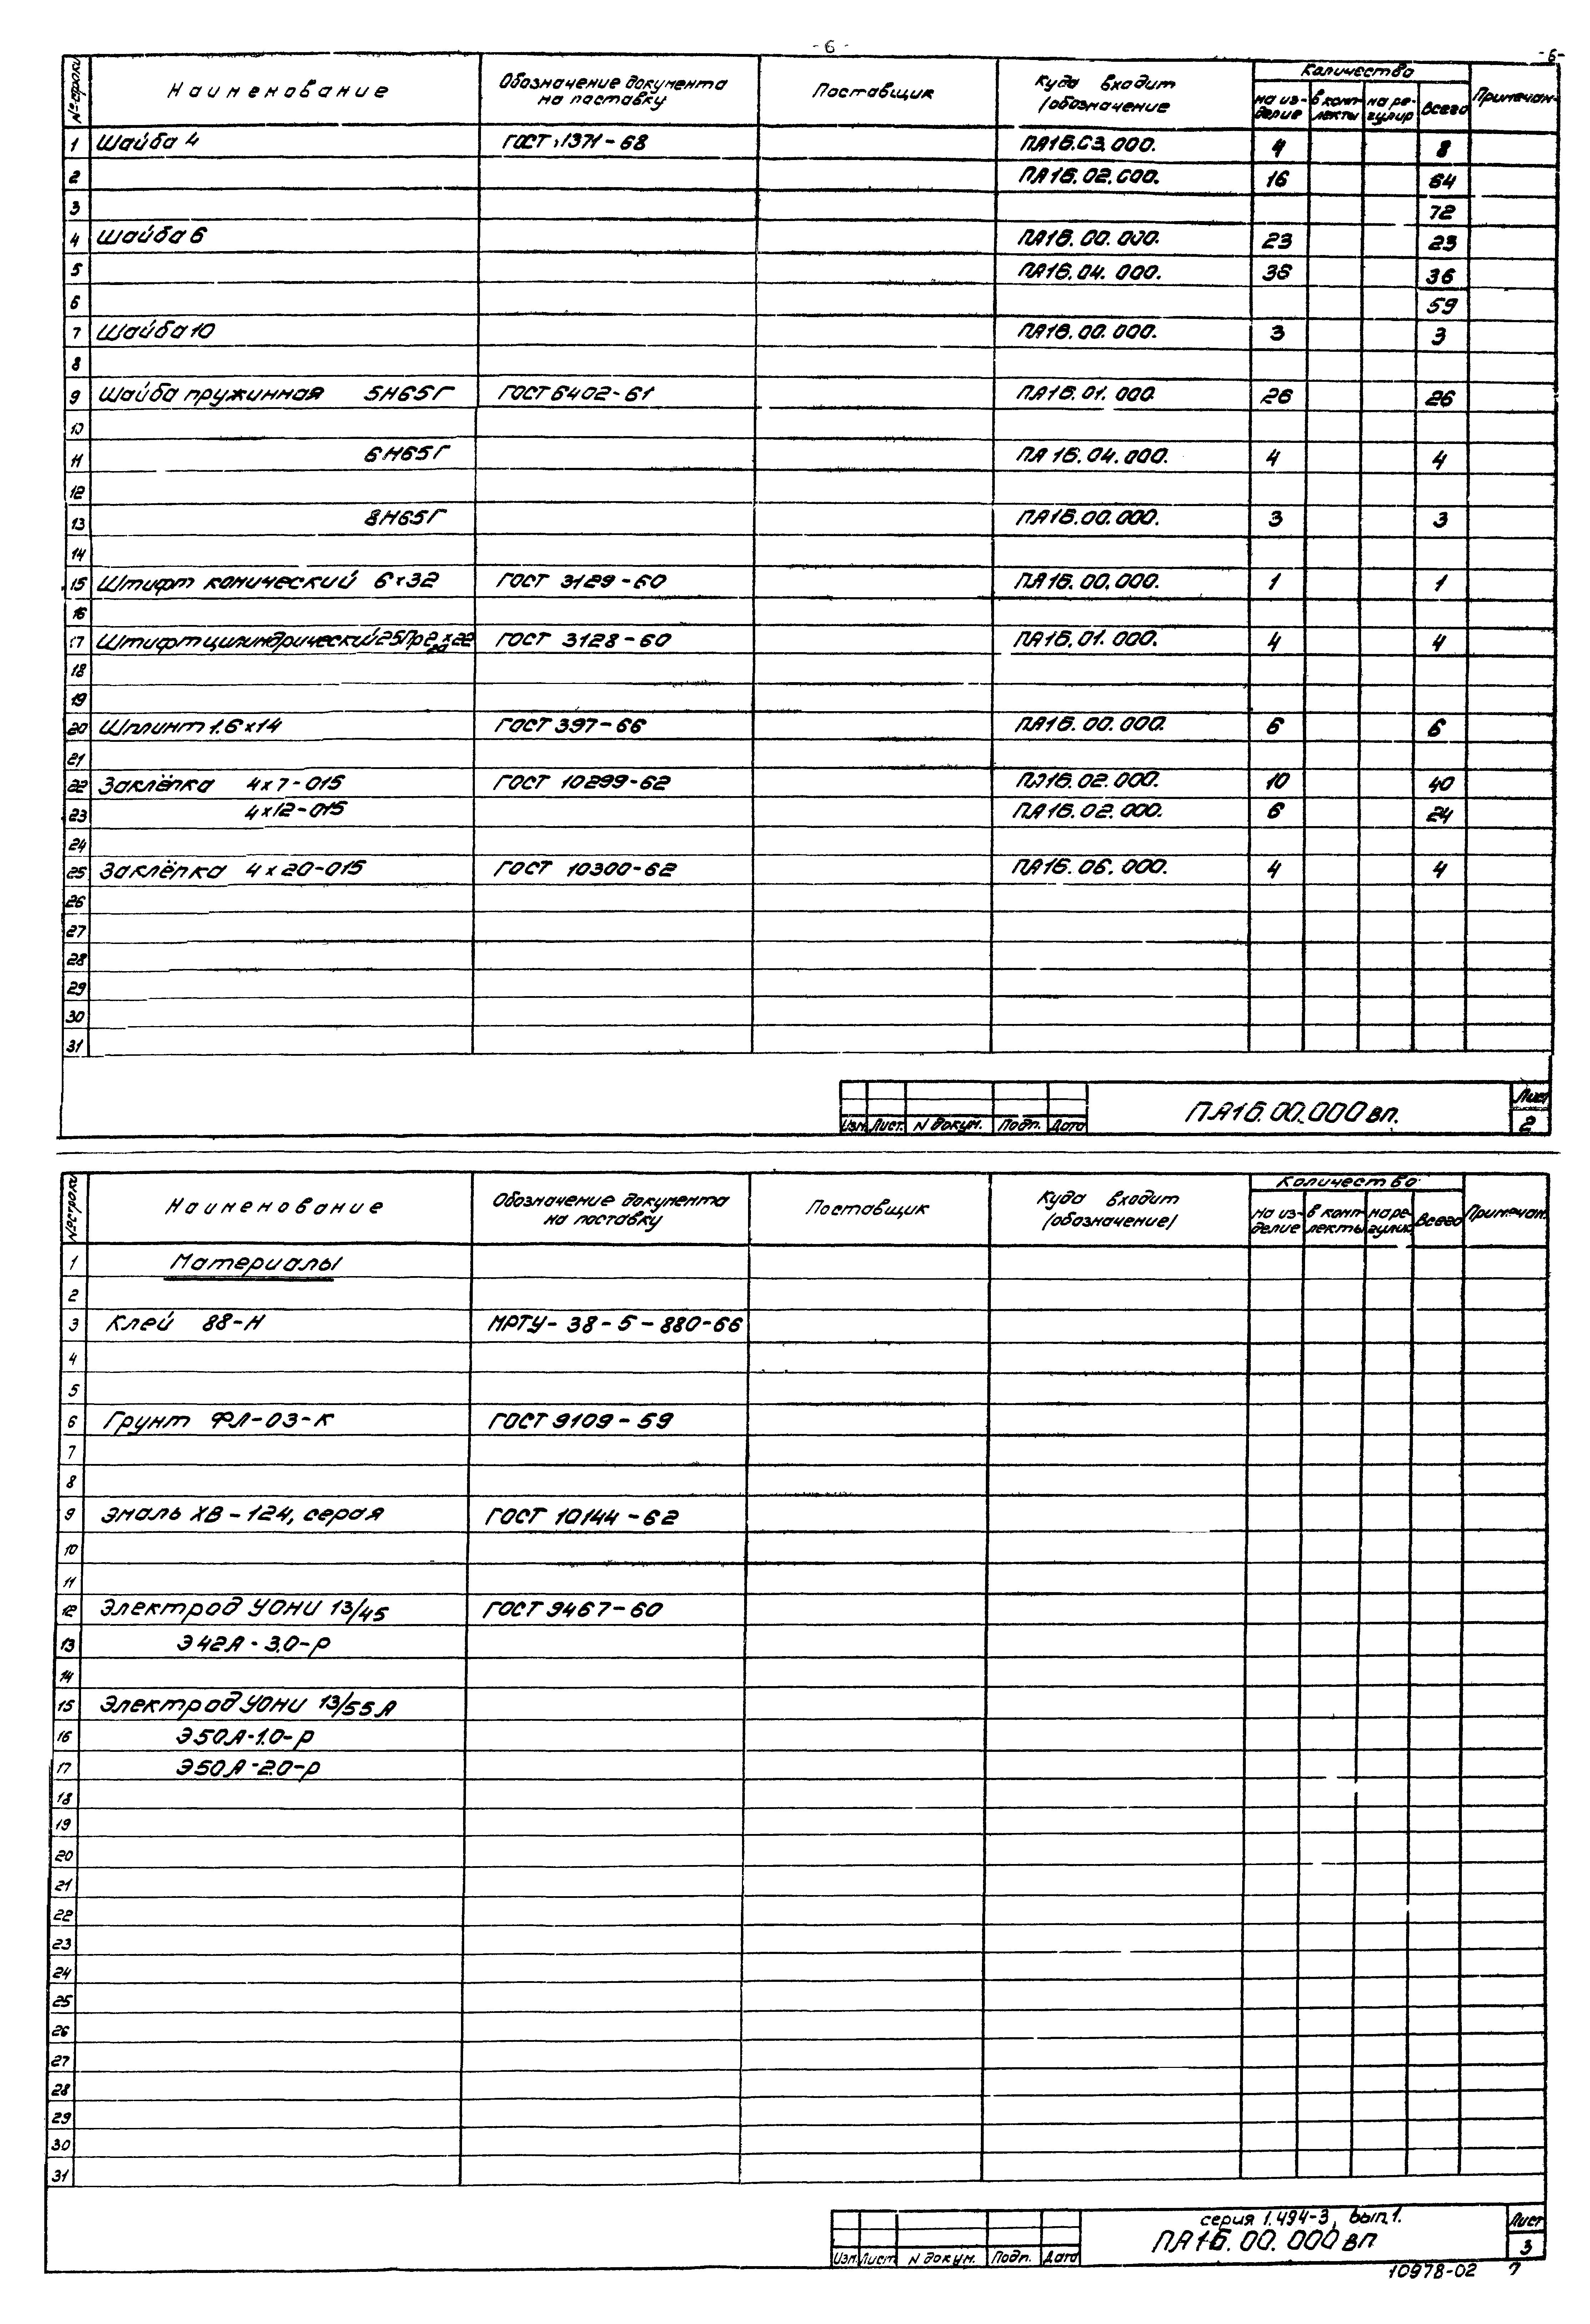 -6-
-6-
№ строки Наименование Обозначение документа на поставку Поставщик Куда входит (обозначение Количество на изделие в комплекты на регулир Всего Примечан.
1 Шайба 4 ГОСТ 11371-68 ПА16.03.000. 4 8
2 ПА16.02.000. 16 64
3 72
4 Шайба 6 ПА16.00.000. 23 23
5 ПА16.04.000. 36 36
6 59
7 Шайба 10 ПА16.00.000. 3 3
8
9 Шайба пружинная 5Н65Г ГОСТ 6402-61 ПА16.01.000. 26 26
10
11 6Н65Г ПА16.04.000. 4 4
12
13 8Н65Г ПА16.00.000. 3 3
14
15 Штифт конический 6х32 ГОСТ 3129-60 ПА16.00.000. 1 1
16
17 Штифт цилиндрический ГОСТ 3128-60 ПА16.01.000. 4 4
18
19
20 Шплинт 1.6х14 ГОСТ 397-66 ПА16.00.000. 6 6
21
22 Заклёпка 4х7-015 ГОСТ 10299-62 ПА16.02.000. 10 40
23 4х12-015 ПА16.02.000. 6 24
24
25 Заклёпка 4х20-015 ГОСТ 10300-62 ПА16.06.000. 4 4
26
27
28
29
30
31
Изм. Лист N докум. Подп. Дата ПА16.00.000 вп. Лист 2
№ строки Наименование Обозначение документа на поставку Поставщик Куда входит (обозначение) Количество на изделие в комплекты на регулир Всего Примечан.
1 Материалы
2
3 Клей 88-Н МРТУ-38-5-880-66
4
5
6 Грунт ФЛ-03-К ГОСТ 9109-59
7
8
9 Эмаль ХВ-124, серая ГОСТ 10144-62
10
11
12 Электрод УОНИ 13/45 ГОСТ 9467-60
13 Э42А-3.0-р
14
15 Электрод УОНИ 13/55А
16 Э50А-1.0-р
17 Э50А-2.0-р
18
19
20
21
22
23
24
25
26
27
28
29
30
31
Изм. Лист N докум. Подп. Дата серия 1.494-3, вып.1. ПА16.00.000 вп Лист 3
10978-02 7